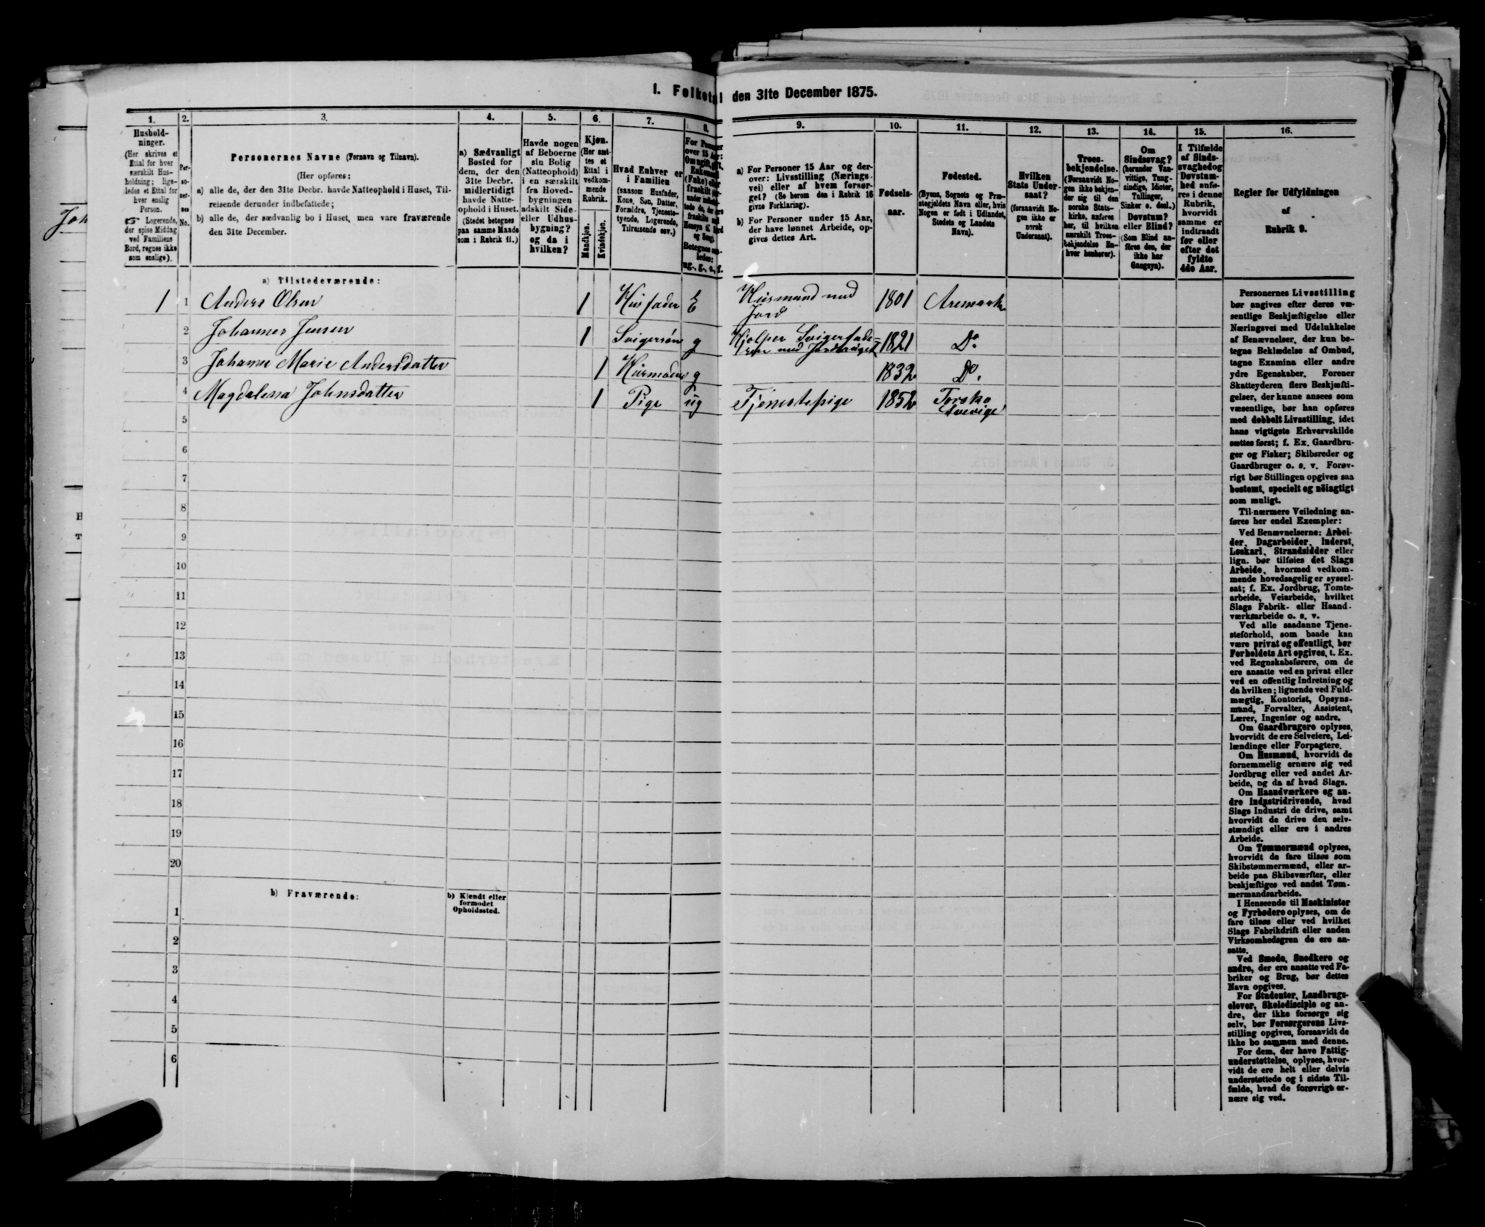 I. Folketal den 31te December 1875.
1. 2. 3. 4. 5. 6. 7. 8. 9. 10. 11. 12. 13. 14. 15. 16.
Hushold-
ninger.
(Her skrives et
Ettal for hver
særskilt Hus-
holdning; lige-
ledes et Ettal for
hver enslig
Person.
☞ Logerende,
der spise Middag
ved Familiens
Bord, regnes ikke
som enslige).
Per-
so-
ner-
nes
No.
Personernes Navne (Fornavn og Tilnavn).
(Her opføres:
a) alle de, der den 31te Decbr. havde Natteophold i Huset, Til-
reisende derunder indbefattede;
b) alle de, der sædvanlig bo i Huset, men vare fraværende
den 31te December.
a) Sædvanligt
Bosted for
dem, der den
31te Decbr.
midlertidigt
havde Natte-
ophold i Huset.
(Stedet betegnes
paa samme Maade
som i Rubrik 11.)
Havde nogen
af Beboerne
sin Bolig
(Natteophold)
i en særskilt
fra Hoved-
bygningen
adskilt Side-
eller Udhus-
bygning?
og da i
hvilken?
Kjøn.
(Her sæt-
tes et
Ettal i
vedkom-
mende
Rubrik.
Mandkjøn.
Kvindekjøn.
Hvad Enhver er
i Familien
(saasom Husfader,
Kone, Søn, Datter,
Forældre, Tjeneste-
tyende, Logerende,
Tilreisende osv.)
a) For Personer 15 Aar og der-
over: Livsstilling (Nærings-
vei) eller af hvem forsør-
get? (Se herom den i Rubrik 16
givne Forklaring).
b) For Personer under 15 Aar,
der have lønnet Arbeide, op-
gives dettes Art.
Fødsels-
aar.
Fødested.
(Byens, Sognets og Præ-
stegjeldets Navn eller, hvis
Nogen er født i Udlandet,
Stedets og Landets
Navn).
Hvilken
Stats Under-
saat?
(forsaavidt No-
gen ikke er
norsk
Undersaat).
Troes-
bekjendelse.
(Forsaavidt No-
gen ikke bekjen-
der sig til den
norske Stats-
kirke, anføres
her, til hvilken
særskilt Troes-
bekjendelse En-
hver henhører).
Om
Sindssvag?
(herunder Van-
vittige, Tung-
sindige, Idioter,
Tullinger,
Sinker o. desl.)
Døvstum?
eller Blind?
(Som Blind an-
føres den, der
ikke har
Gangsyn).
I Tilfælde
af Sinds-
svaghed og
Døvstum-
hed anfø-
res i denne
Rubrik,
hvorvidt
samme er
indtraadt
før eller
efter det
fyldte
4de Aar.
Regler for Udfyldningen
af
Rubrik 9.
a) Tilstedeværende:
1 1 Anders Olsen 1 Husfader E Husmand med Jord 1801 Aremark
2 Johannes Jensen 1 Svigersøn g Hjelper Svigerfade- 1821 Do.
3 Johanne Marie Andersdatter 1 Husmoder g 1832 Do.
4 Magdalena Johnsdatter 1 Pige ug Tjenestepige 1852 Torsko Sverige
5
6
7
8
9
10
11
12
13
14
15
16
17
18
19
20
b) Fraværende:
b) Kjendt eller
formodet
Opholdssted.
1
2
3
4
5
6
Personernes Livsstilling
bør angives efter deres væ-
sentlige Beskjæftigelse eller
Næringsvei med Udelukkelse
af Benævnelser, der kun be-
tegne Beklædelse af Ombud,
tagne Examina eller andre
ydre Egenskaber. Forener
Skatteyderen flere Beskjæfti-
gelser, der kunne ansees som
væsentlige, bør han opføres
med dobbelt Livsstilling, idet
hans vigtigste Erhvervskilde
sættes først; f. Ex. Gaardbru-
ger og Fisker; Skibsreder og
Gaardbruger o. s. v. Forøv-
rigt bør Stillingen opgives saa
bestemt, specielt og nøiagtigt
som muligt.
Til nærmere Veiledning an-
føres her endel Exempler:
Ved Benævnelserne: Arbei-
der, Dagarbeider, Inderst,
Løskarl, Strandsidder eller
lign. bør tilføies det Slags
Arbeide, hvormed vedkom-
mende hovedsagelig er syssel-
sat; f. Ex. Jordbrug, Tomte-
arbeide, Veiarbeide, hvilket
Slags Fabrik- eller Haand-
værksarbeide o. s. v.
Ved alle saadanne Tjene-
steforhold, som baade kan
være privat og offentligt, bør
Forholdets Art opgives, t. Ex.
ved Regnskabsførere, om de
ere ansatte ved en privat eller
ved en offentlig Indretning og
da hvilken; lignende ved Fuld-
mægtig, Kontorist, Opsyns-
mand, Forvalter, Assistent,
Lærer, Ingeniør og andre.
Om Gaardbrugere oplyses,
hvorvidt de ere Selveiere, Lei-
lændinge eller Forpagtere.
Om Husmænd, hvorvidt de
fornemmelig ernære sig ved
Jordbrug eller ved andet Ar-
beide, og da af hvad Slags.
Om Haandværkere og an-
dre Industridrivende, hvad
Slags Industri de drive, samt
hvorvidt de drive den selv-
stændigt eller ere i andres
Arbeide.
Om Tømmermænd oplyses,
hvorvidt de fare tilsøs som
Skibstømmermænd, eller ar-
beide paa Skibsværfter, eller
beskjæftiges ved andet Tøm-
mermandsarbeide.
I Henseende til Maskinister
og Fyrbødere oplyses, om de
fare tilsøs eller ved hvilket
Slags Fabrikdrift eller anden
Virksomhedsgren de ere an-
satte.
Ved Smede, Snedkere og
andre, der ere ansatte ved Fa-
briker og Brug, bør dettes
Navn opgives.
For Studenter, Landbrugs-
elever, Skoledisciple og an-
dre, der ikke forsørge sig
selv, bør Forsørgerens Livs-
stilling opgives, forsaavidt de
ikke bo sammen med denne.
For dem, der have Fattig-
understøttelse, oplyses, hvor-
vidt de ere helt eller delvis
understøttede og i sidste Til-
fælde, hvad de forøvrigt er-
nære sig ved.